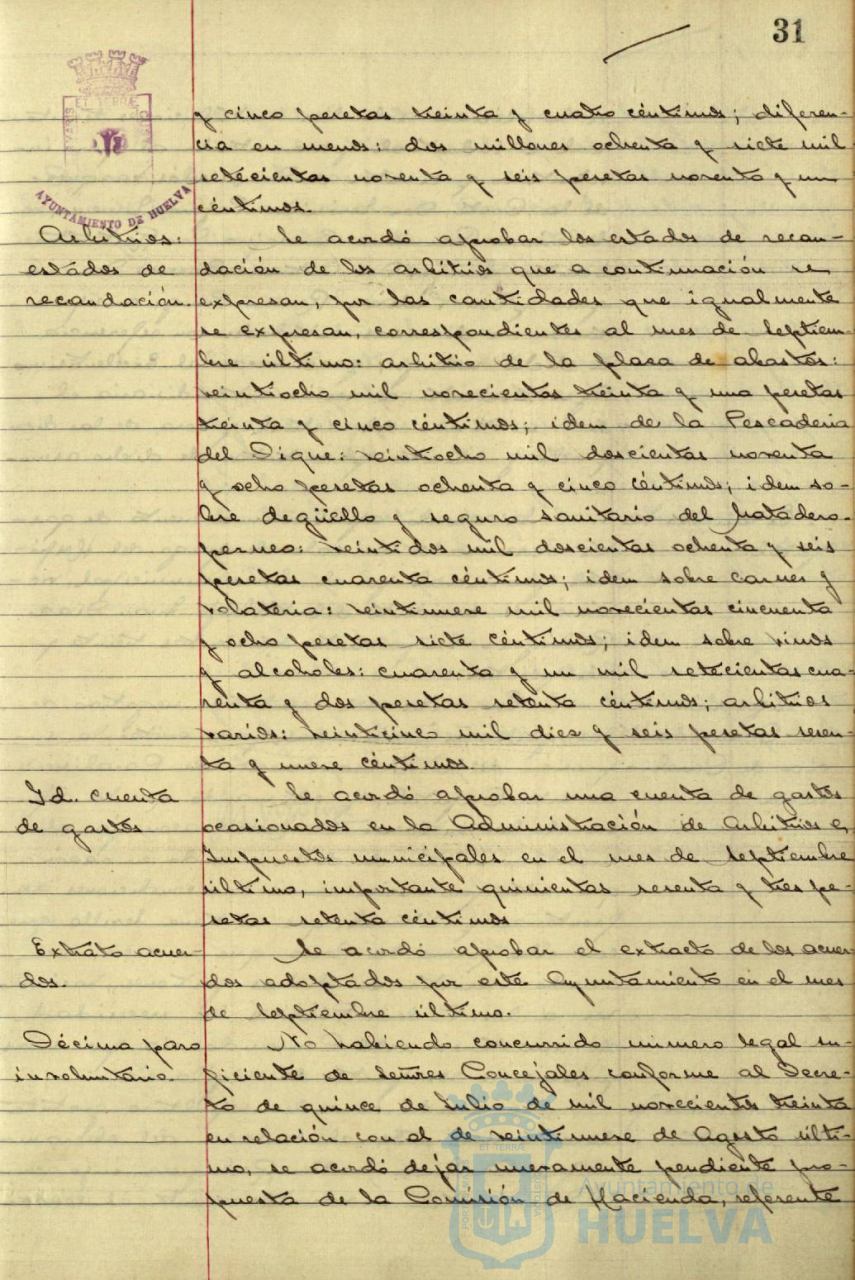 31
y cinco pesetas treinta y cuatro céntimos; diferen-
cia en menos: dos millones ochenta y siete mil
setecientas noventa y seis pesetas noventa y un
céntimos.
AYUNTAMIENTO DE HUELVA
Arbitrios:
estados de
recaudación.
Se acordó aprobar los estados de recau-
dación de los arbitrios que a continuación se
expresan, por las cantidades que igualmente
se expresan, correspondientes al mes de Septiem-
bre último: arbitrio de la plaza de abastos:
veintiocho mil novecientas treinta y una pesetas
treinta y cinco céntimos; idem de la Pescaderia
del Dique: veintiocho mil doscientas noventa
y ocho pesetas ochenta y cinco céntimos; idem so-
bre degüello y seguro sanitario del Matadero-
perneo: veintidos mil doscientas ochenta y seis
pesetas cuarenta céntimos; idem sobre carnes y
volateria: veintinueve mil novecientas cincuenta
y ocho pesetas siete céntimos; idem sobre vinos
y alcoholes: cuarenta y un mil setecientas cua-
renta y dos pesetas setenta céntimos; arbitrios
varios: veinticinco mil diez y seis pesetas sesen-
ta y nueve céntimos.
Id. cuenta
de gastos
Se acordó aprobar una cuenta de gastos
ocasionados en la Administración de Arbitrios e
Impuestos municipales en el mes de Septiembre
último, importante quinientas sesenta y tres pe-
setas setenta céntimos
Extrato acuer-
dos.
Se acordó aprobar el extracto de los acuer-
dos adoptados por este Ayuntamiento en el mes
de Septiembre último.
Décima paro
involuntario.
No habiendo concurrido número legal su-
ficiente de Señores Concejales conforme al Decre-
to de quince de Julio de mil novecientos treinta
en relación con el de veintinueve de Agosto últi-
mo, se acordó dejar nuevamente pendiente pro-
puesta de la Comisión de Hacienda, referente
Ayuntamiento de
HUELVA